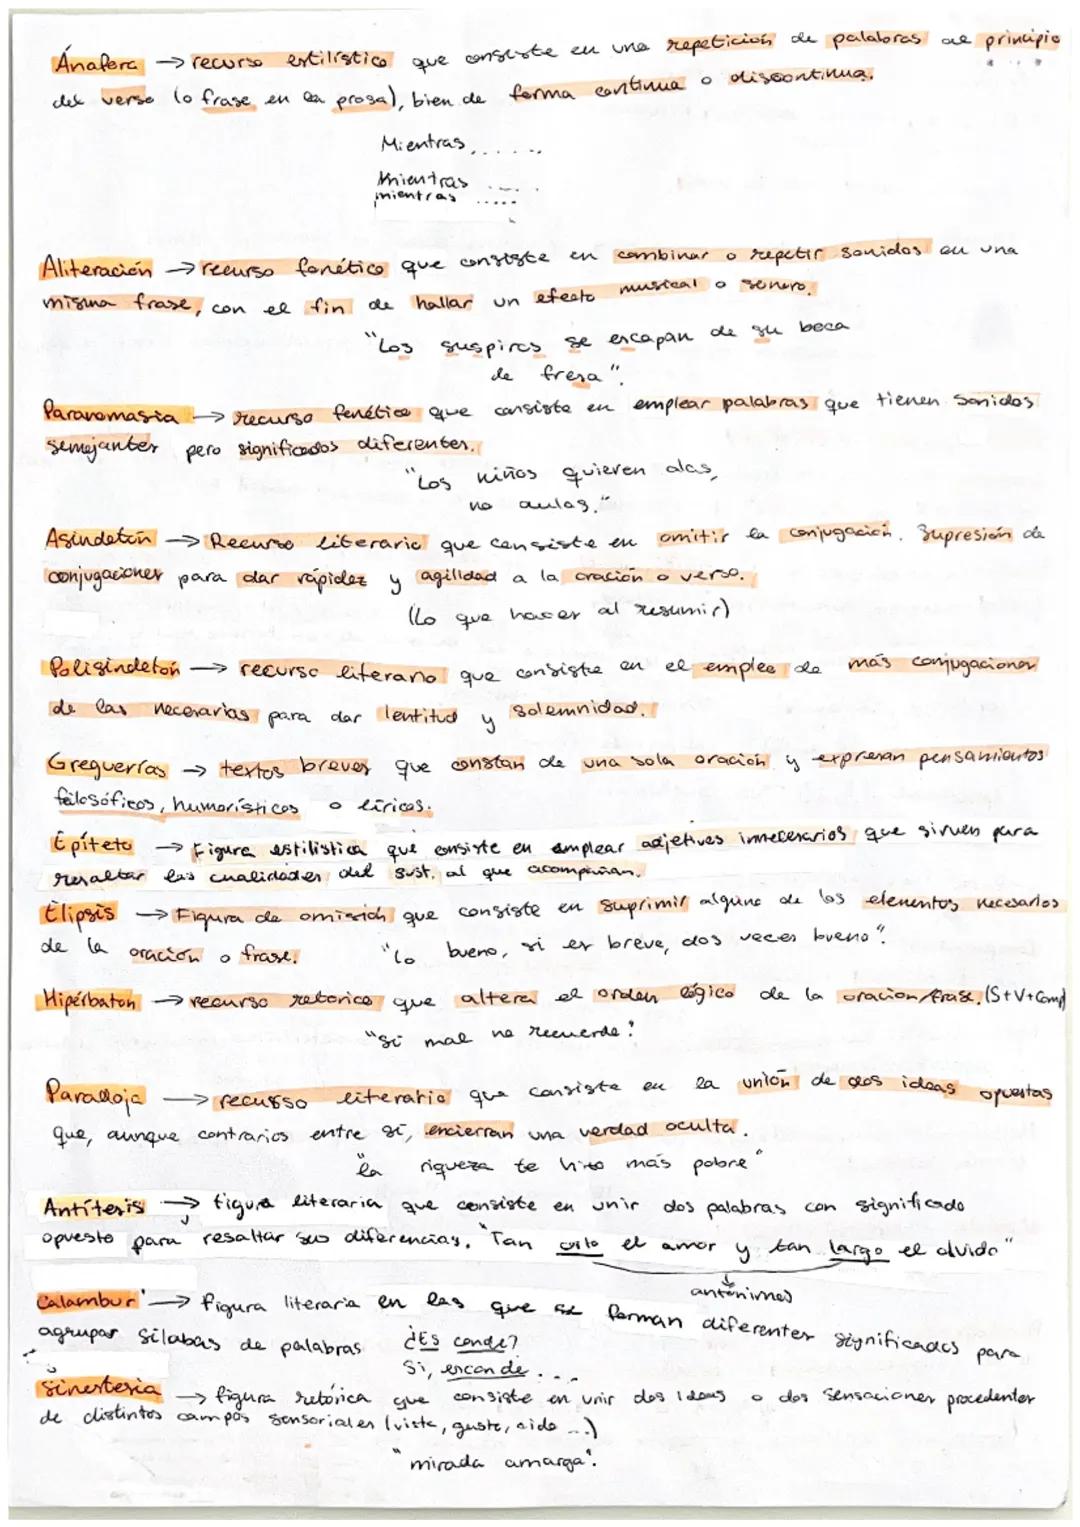 Ánafora → recurso estilístico que consiste en una repetición de palabras al principio
del verso (o frase en la prosa), bien de forma continua o discontinua.
Mientras......
Mientras ....
mientras .....
Aliteración → recurso fonético que consiste en combinar o repetir sonidos en una
misma frase, con el fin de hallar un efecto musical o sonoro.
"Los suspiros se escapan de su boca
de fresa".
Paranomasia → recurso fonético que consiste en emplear palabras que tienen sonidos
semejantes pero significados diferentes.
"Los niños quieren alas,
no aulas."
Asindetón → Recurso literario que consiste en omitir la conjugación. Supresión de
conjugaciones para dar rápidez y agilidad a la oración o verso.
(Lo que hacer al resumir)
Polisindetón → recurso literario que consiste en el emplee de más conjugaciones
de las necesarias para dar lentitud y solemnidad.
Greguerías → textos breves que constan de una sola oración y expresan pensamientos
filosóficos, humorísticos o líricos.
Epíteto → Figura estilística que consiste en emplear adjetivos innecesarios que sirven para
resaltar las cualidades del sust. al que acompañan.
Elipsis → Figura de omisión que consiste en suprimir alguno de los elementos necesarios
de la oración o frase. "lo bueno, si es breve, dos veces bueno".
Hipérbaton → recurso retorico que altera el orden lógico de la oracion/frase. (S+V+Comp)
"Si mal no recuerdo"
Paradoja → recurso literario que consiste en la unión de dos ideas opuestas
que, aunque contrarios entre sí, encierran una verdad oculta.
"la riqueza te hizo más pobre"
Antítesis → figura literaria que consiste en unir dos palabras con significado
opuesto para resaltar sus diferencias. "Tan corto el amor y tan largo el olvido"
antónimos
Calambur → figura literaria en las que se forman diferentes significados para
agrupar sílabas de palabras ¿Es conde?
Si, esconde...
Sinestesia → figura retórica que consiste en unir dos ideas o dos sensaciones procedentes
de distintos campos sensoriales (vista, gusto, oido ...)
"mirada amarga".